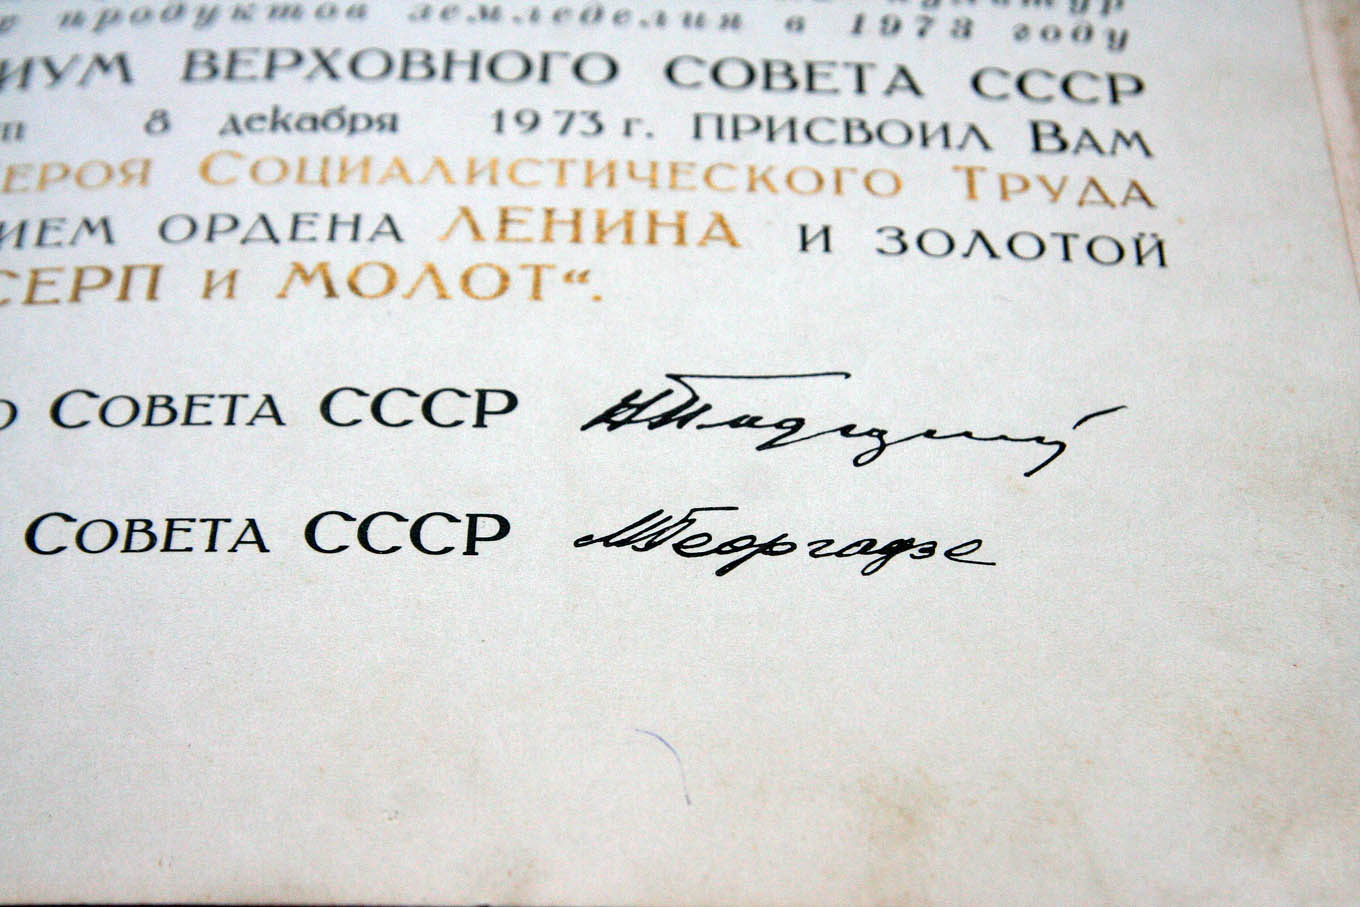 продуктов земледелия в 1973 году
ИУМ ВЕРХОВНОГО СОВЕТА СССР
8 декабря 1973 г. ПРИСВОИЛ ВАМ
ЕРОЯ СОЦИАЛИСТИЧЕСКОГО ТРУДА
ИЕМ ОРДЕНА ЛЕНИНА И ЗОЛОТОЙ
СЕРП И МОЛОТ“.
О СОВЕТА СССР Н Подгорный
СОВЕТА СССР М Георгадзе